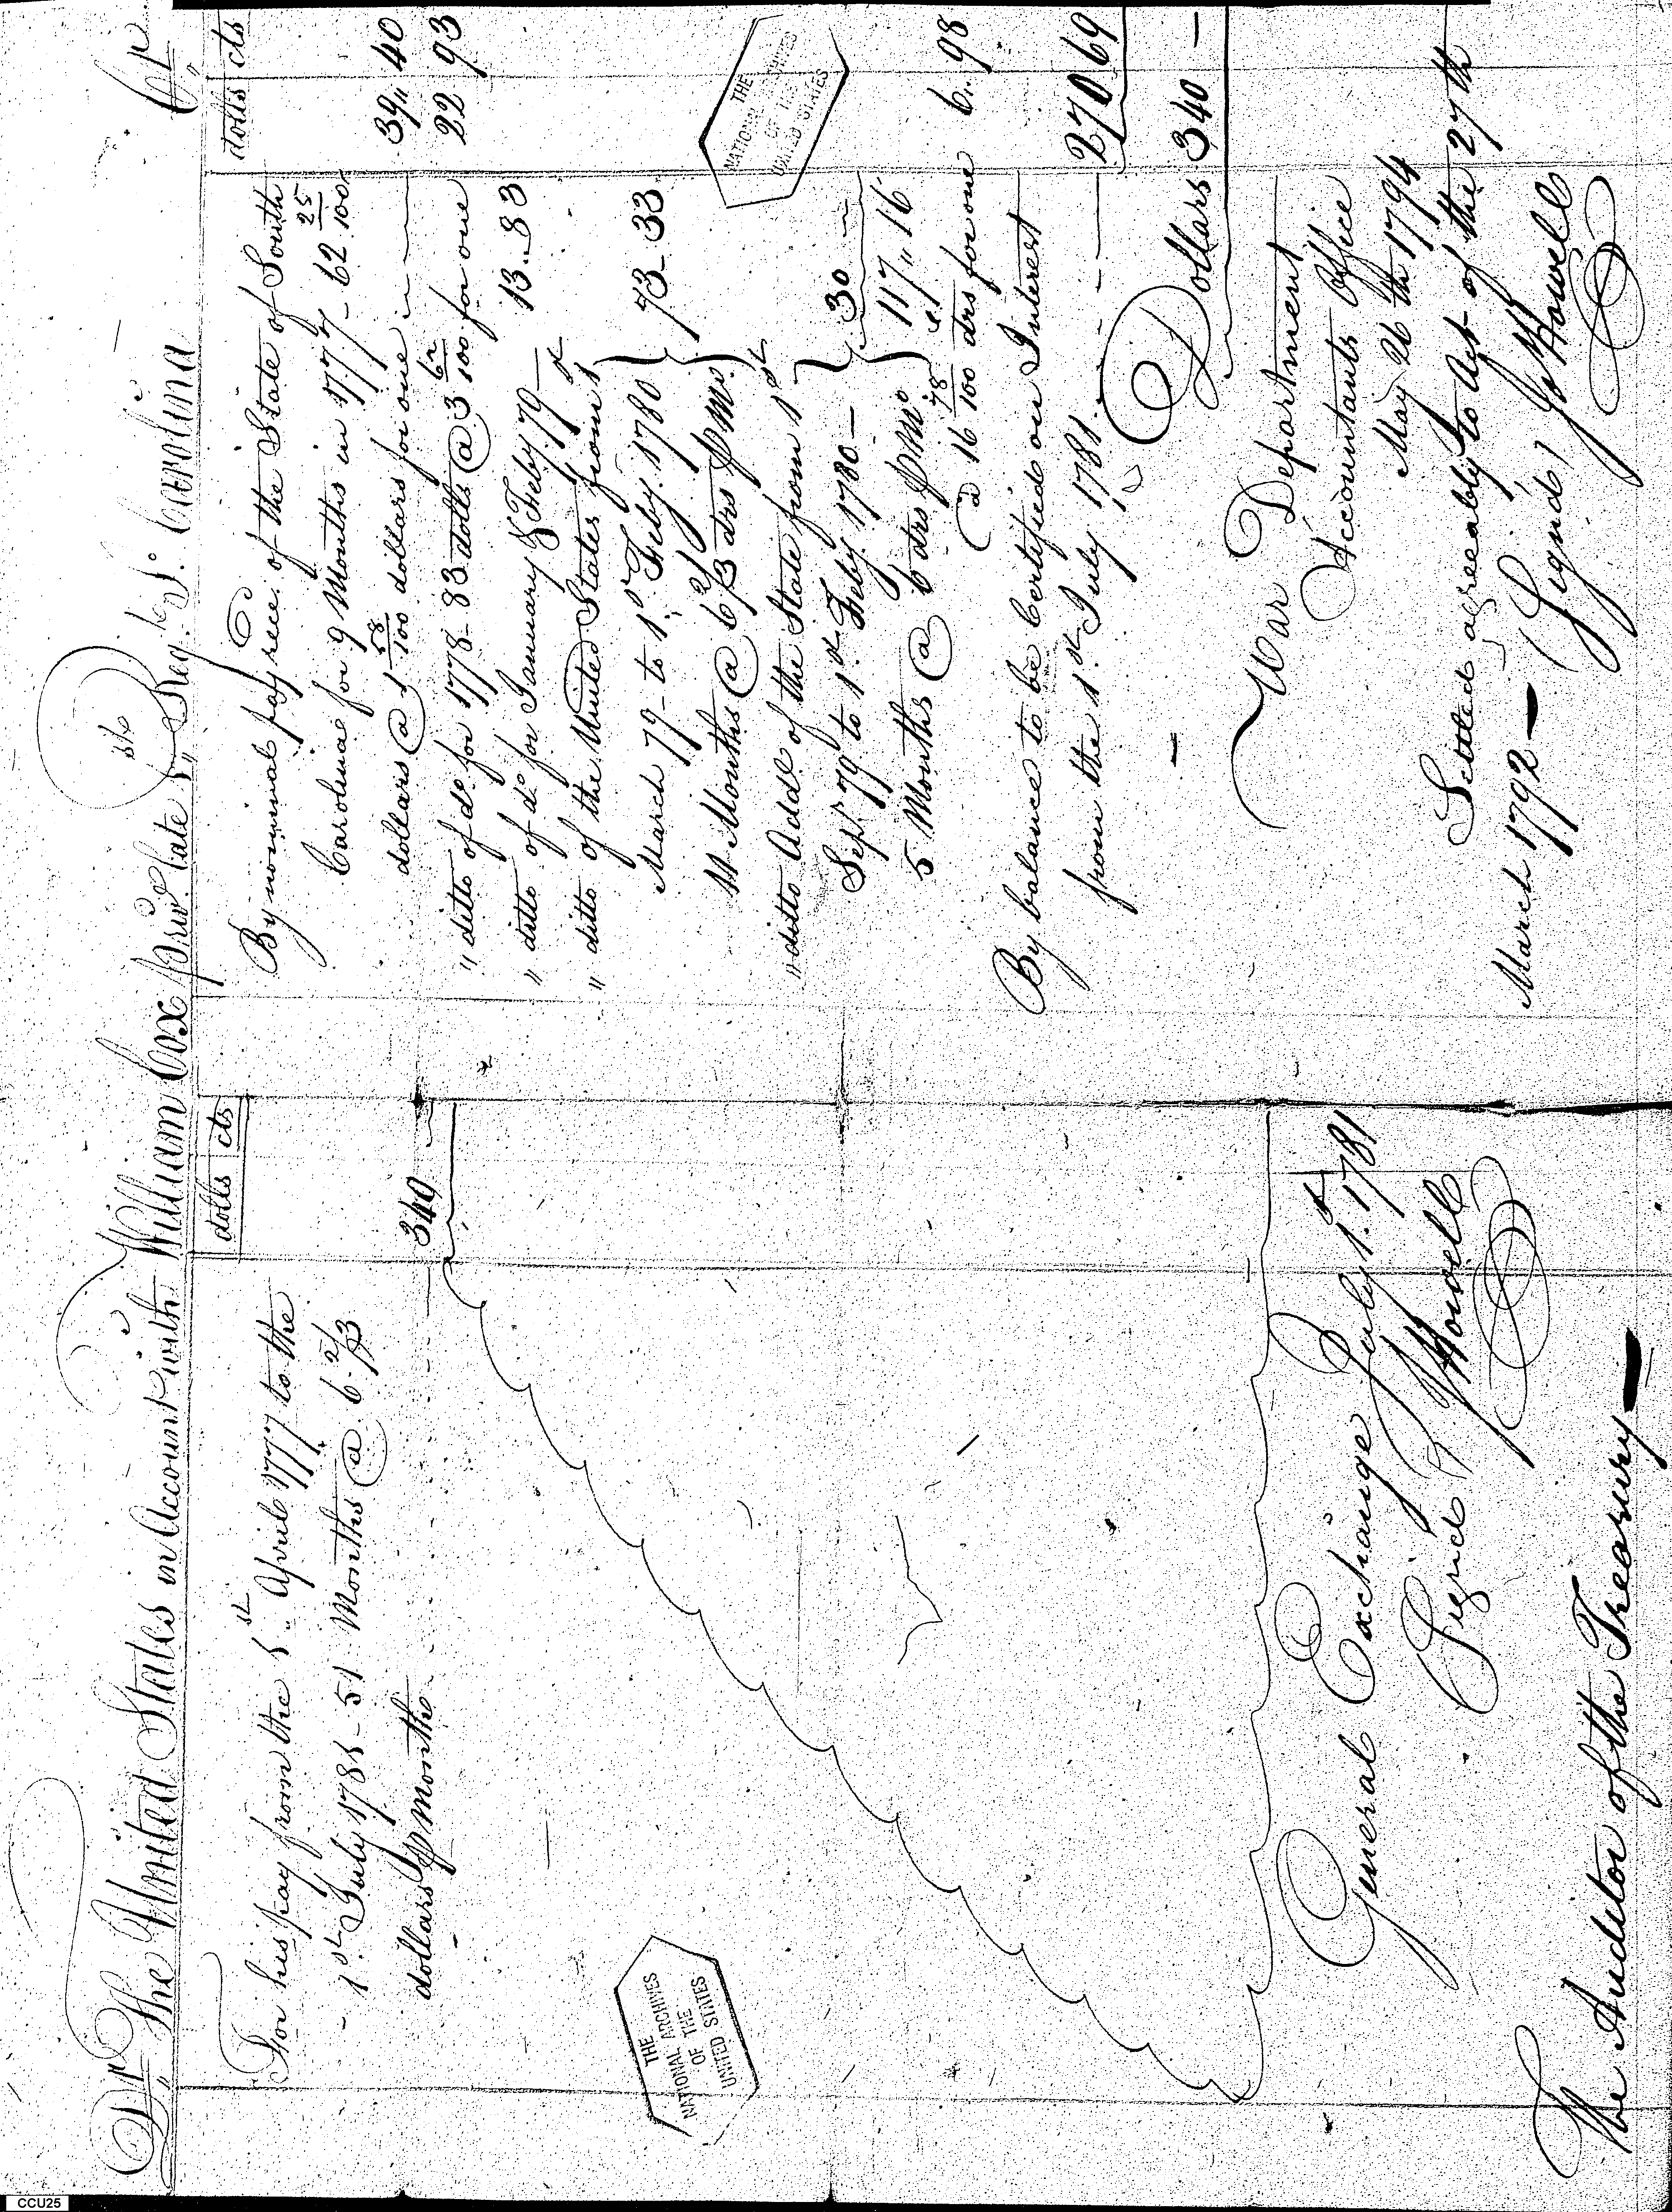 Dr The United States in Account with William Cox Priv. late 1st Reg. So. Carolina Cr
dolls cts
For his pay from the 1st April 1777 to the
1st July 1781 - 51 Months @ 6 2/3
dollars ⅌ Month 340
General Exchange July 1st 1781
(Signed) J Howell
The Auditor of the Treasury
dolls cts
By nominal pay recd. of the State of South
Carolina for 9 Months in 1777 - 62 25/100
dollars @ 1 58/100 dollars for one 39 40
" ditto of do. for 1778 - 83 dolls @ 3 62/100 for one 22 93
" ditto of do. for January & Feby. 79 13 - 83
" ditto of the United States from 1st
March 79 - to 1st Feby. 1780
11 Months @ 6 2/3 drs ⅌ Mo. 73 - 33
" ditto Addl. of the State from 1st
Sept. 79 to 1st Feby. 1780 -
5 Months @ 6 drs ⅌ Mo. 30 -
117 " 16
@ 16 78/100 drs for one 6 " 98
By balance to be Certified on Interest
from the 1st July 1781 270 69
Dollars 340 -
War Department
Accountants Office
May 26th 1794
Settled agreeably to Act of the 27th
March 1792 - (Signed) J Howell
THE
NATIONAL ARCHIVES
OF THE
UNITED STATES
THE
NATIONAL ARCHIVES
OF THE
UNITED STATES
CCU25